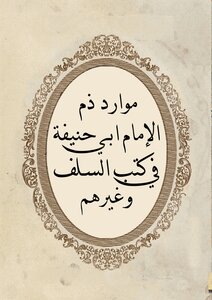 موارد ذم
الإمام ابي حنيفة
في كتب السلف
وغيرهم